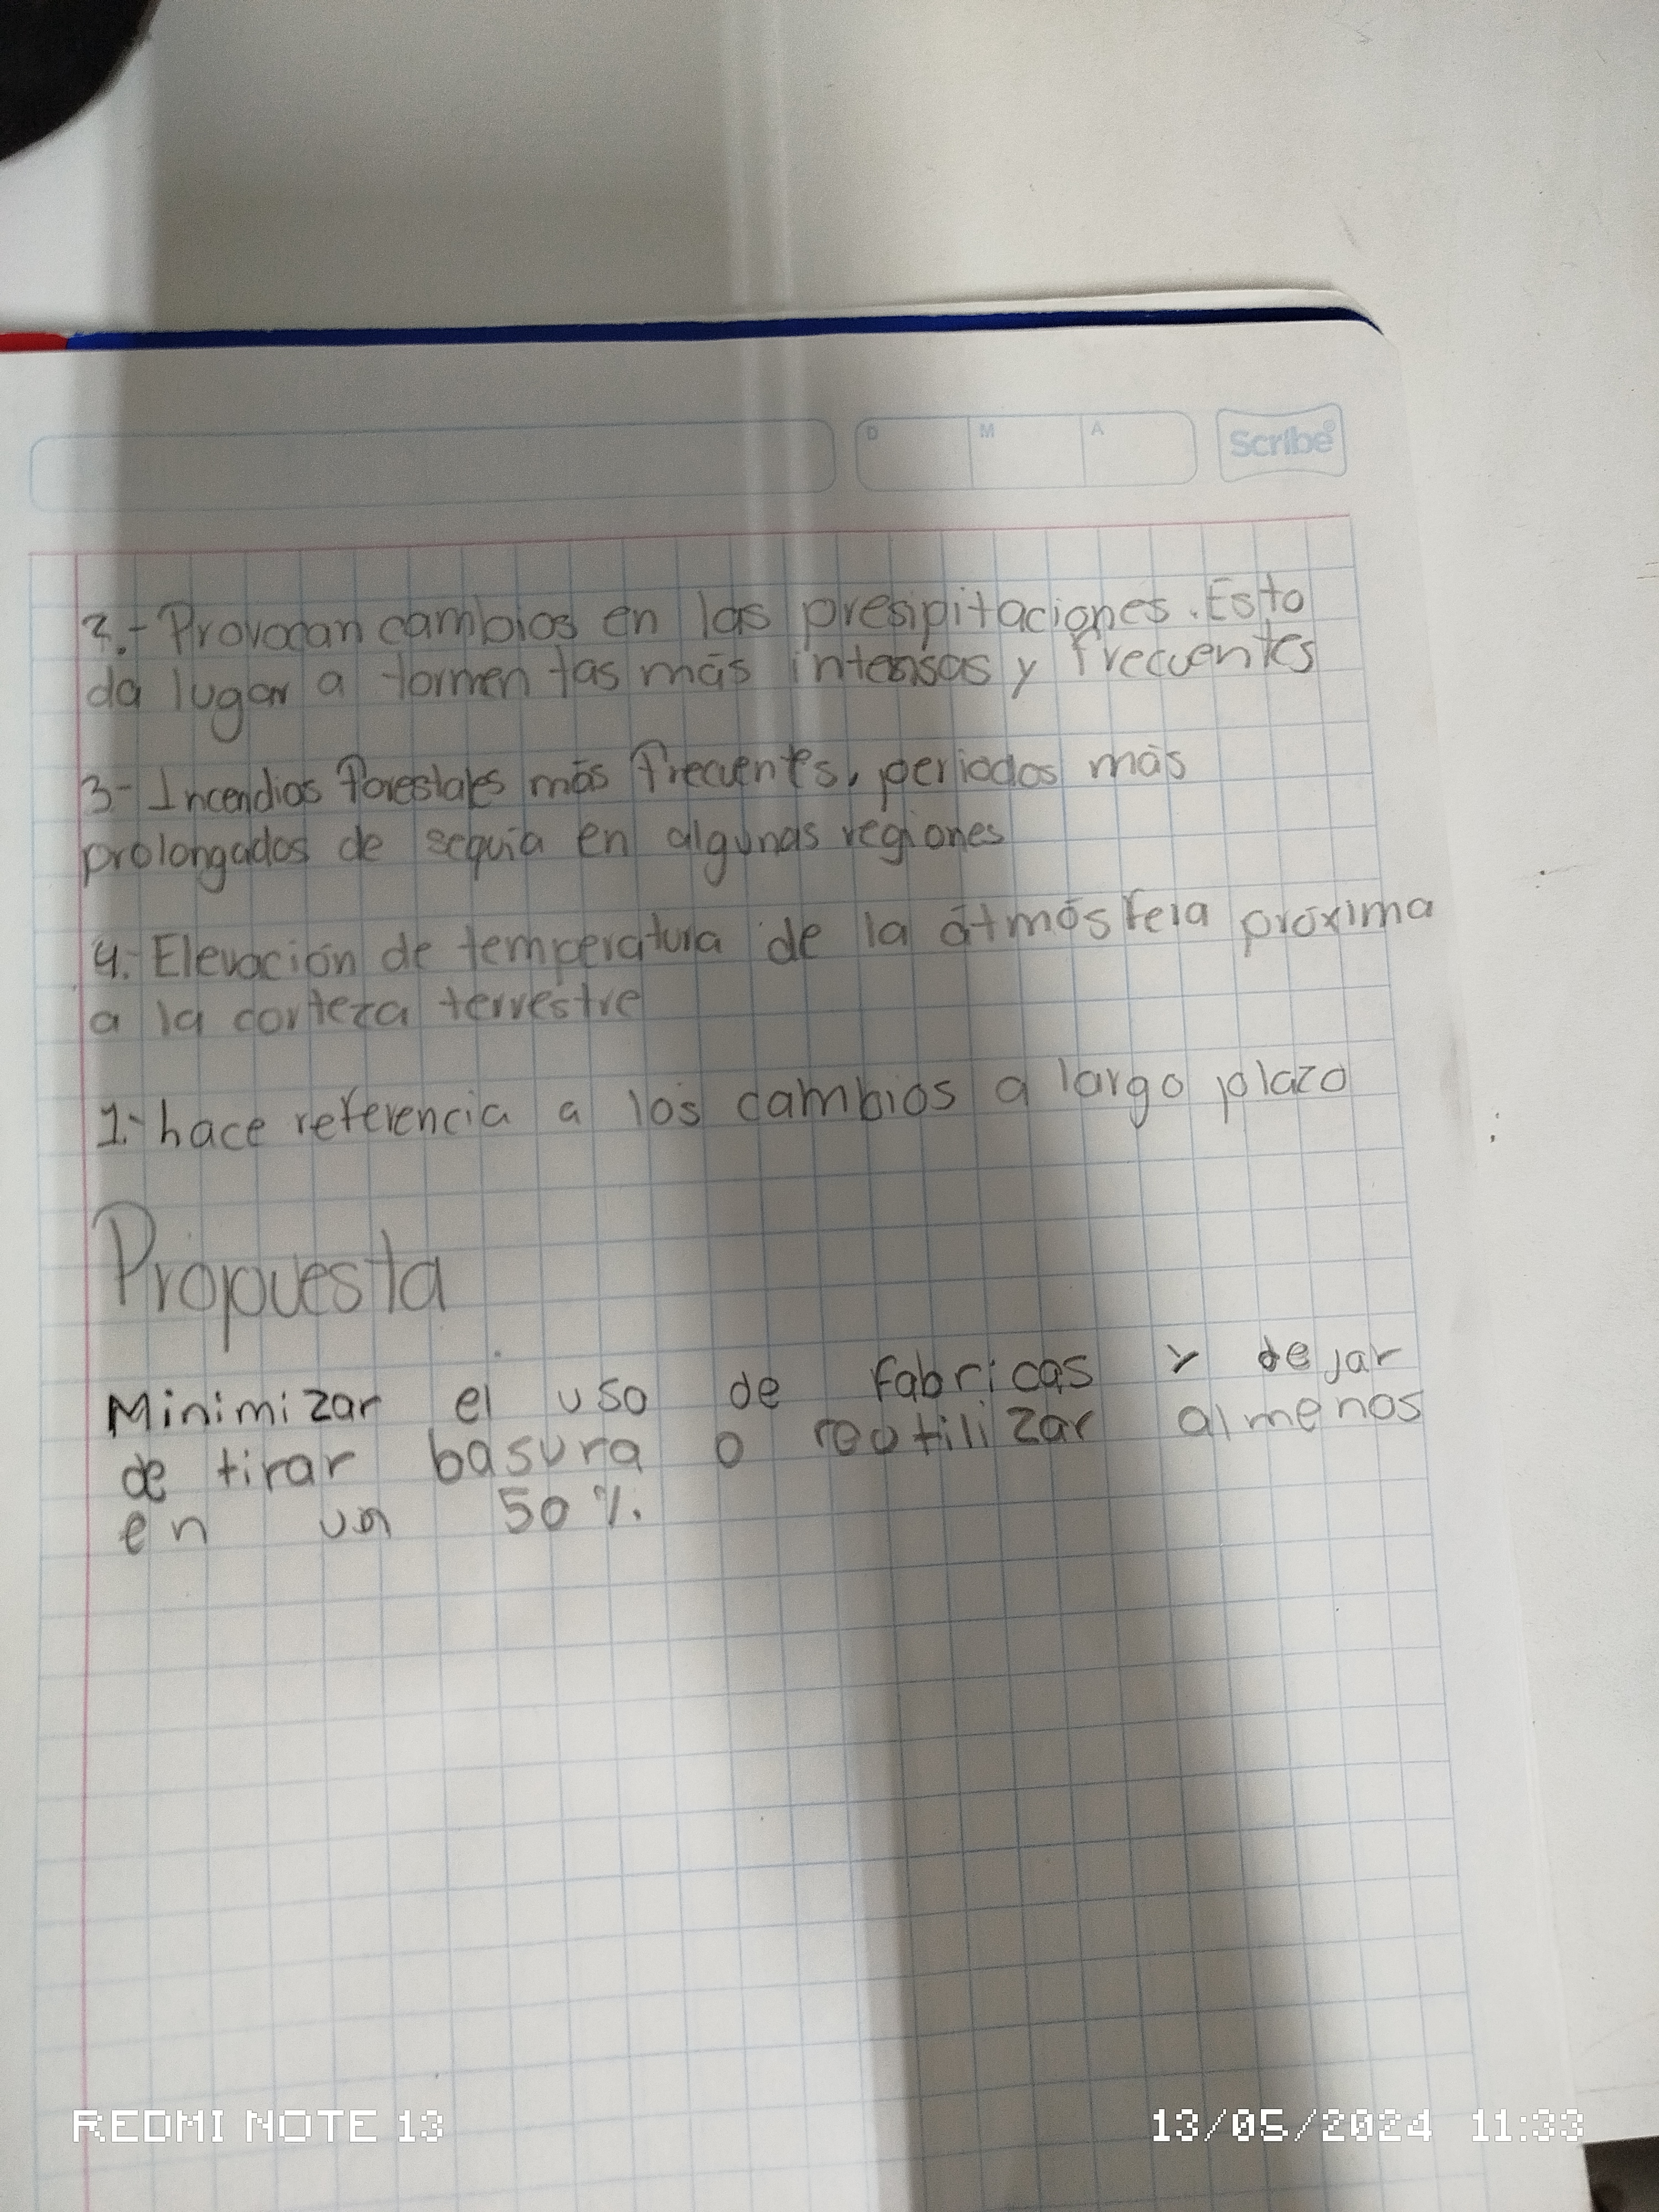 D M A Scribe®
2.- Provocan cambios en las presipitaciones. Esto
da lugar a tormentas más intensas y frecuentes
3- Incendios forestales más frecuentes, periodos más
prolongados de sequía en algunas regiones
4.- Elevación de temperatura de la átmósfera próxima
a la corteza terrestre
1.- hace referencia a los cambios a largo plazo
Propuesta
Minimizar el uso de fabricas y dejar
de tirar basura o reutilizar almenos
en un 50%.
REDMI NOTE 13 13/05/2024 11:33